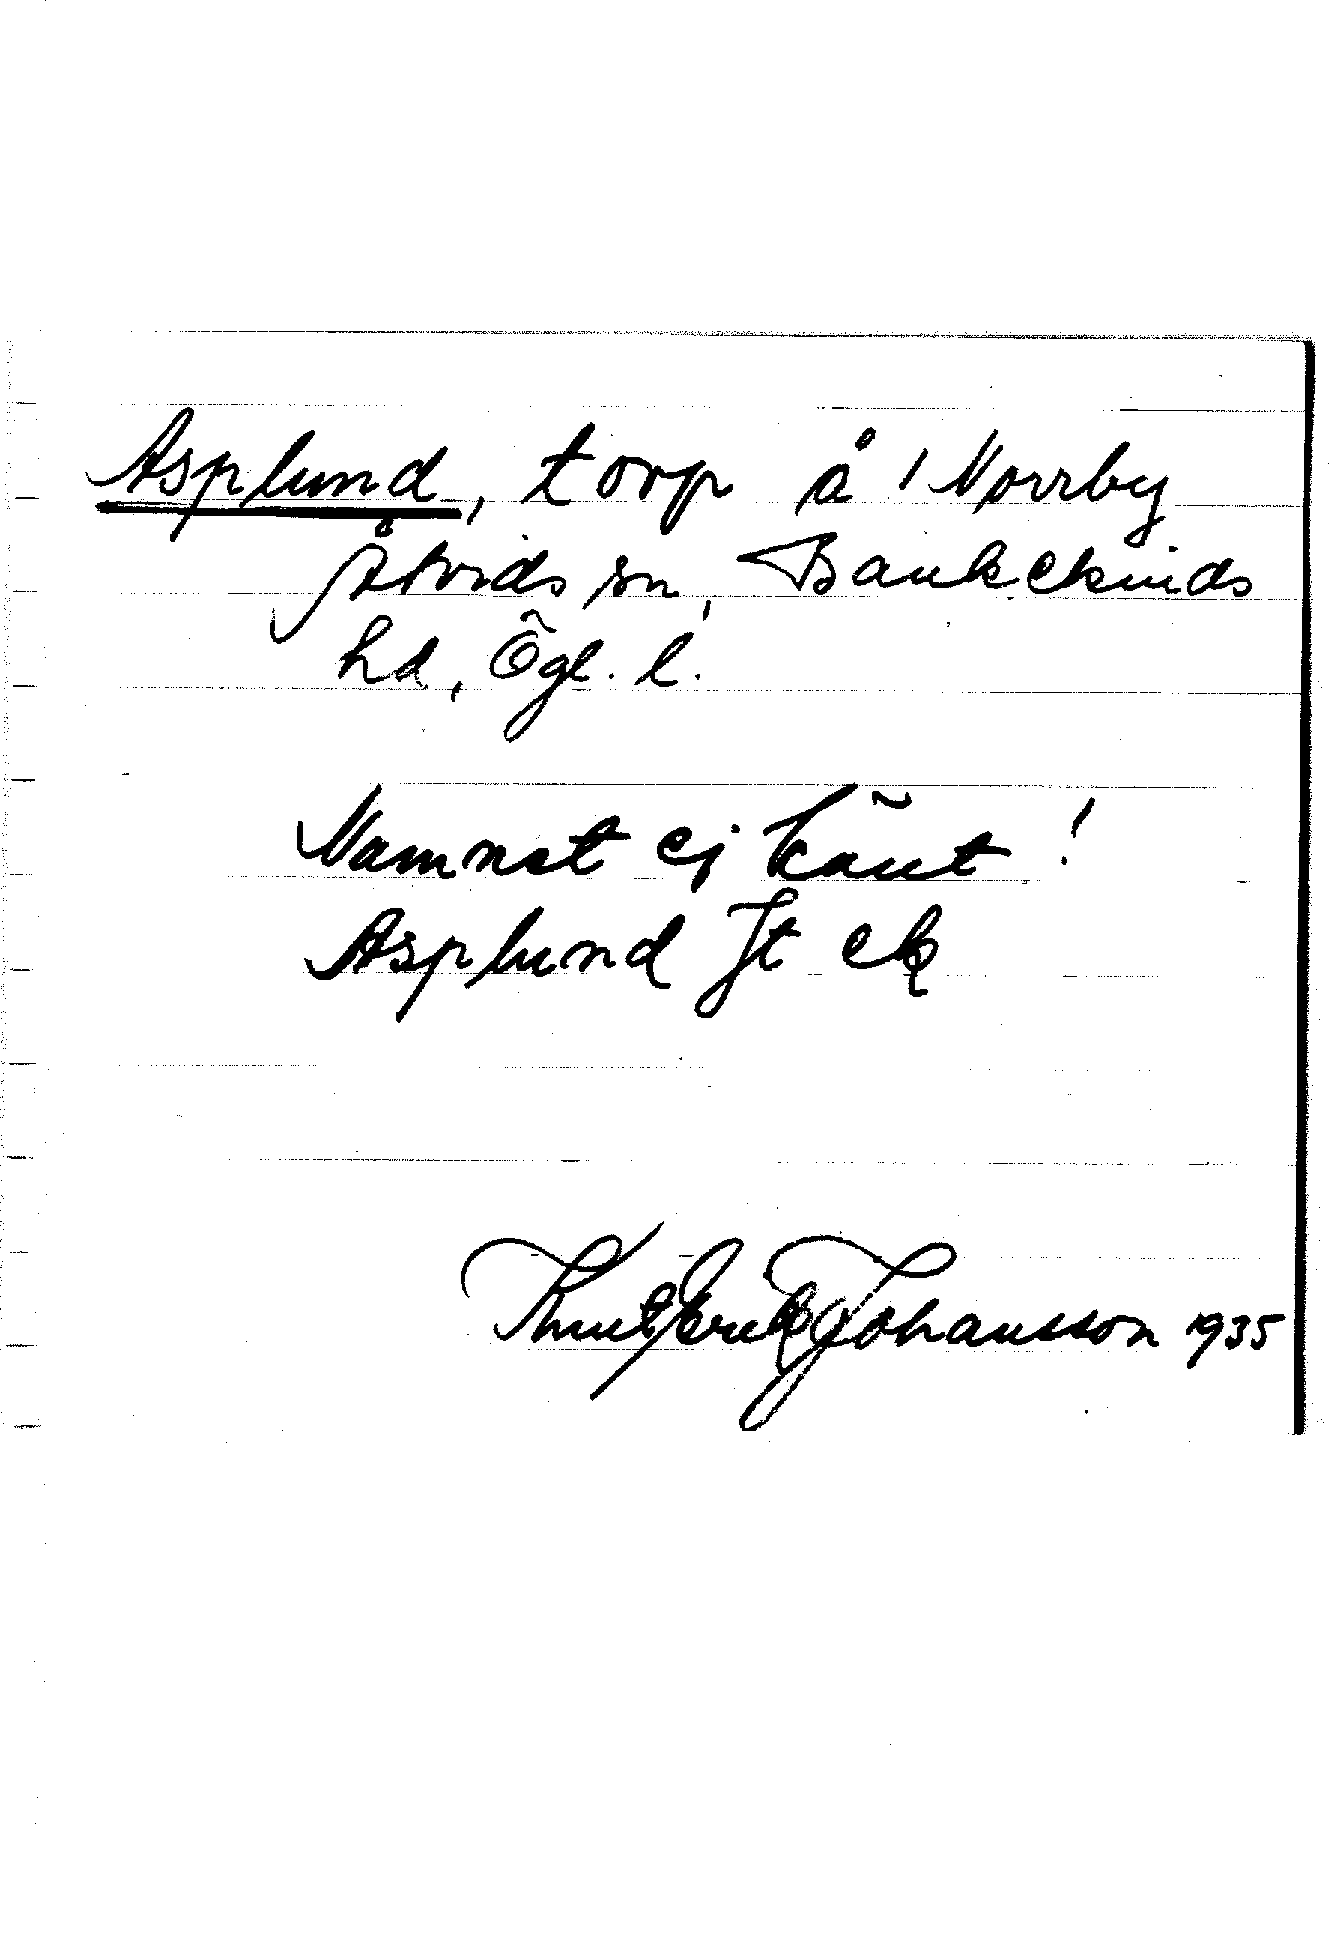 Asplund, torp å 1 Norrby
Åtvids sn, Bankekinds
hd, Ögl. l.
Namnet ej känt!
Asplund Jt ek
Knut Erik Johansson 1935